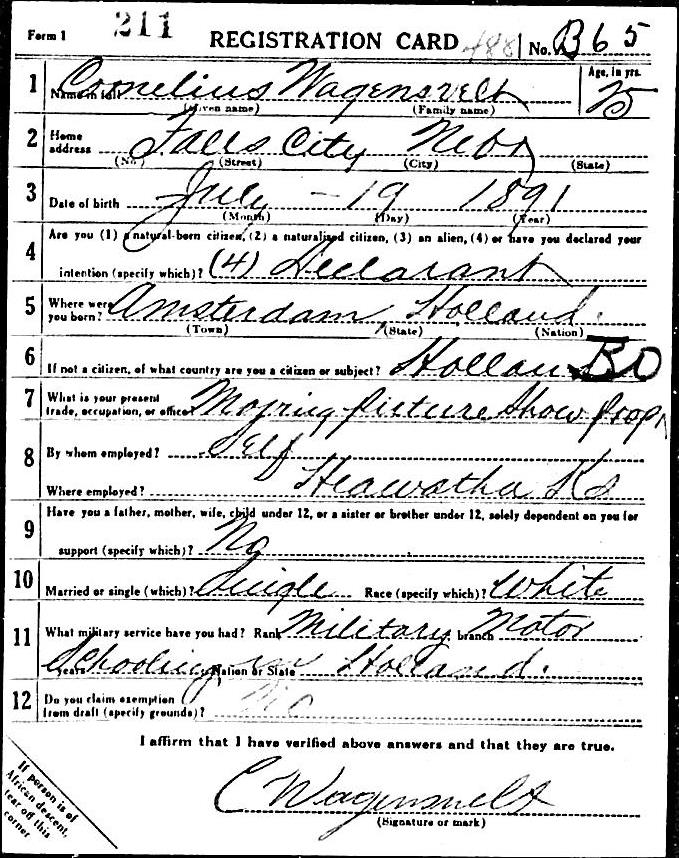 Form 1 211 REGISTRATION CARD 488 No. B65
1 Name in full Cornelius Wagensvelt Age, in yrs. 25
(Given name) (Family name)
2 Home address Falls City Nebr
(No.) (Street) (City) (State)
3 Date of birth July - 19 1891
(Month) (Day) (Year)
4 Are you (1) a natural-born citizen, (2) a naturalized citizen, (3) an alien, (4) or have you declared your
intention (specify which)? (4) Declarant
5 Where were you born? Amsterdam Holland.
(Town) (State) (Nation)
6 If not a citizen, of what country are you a citizen or subject? Holland
7 What is your present trade, occupation, or office? Moving picture Show prop
8 By whom employed? Self
Where employed? Heawatha Ks
9 Have you a father, mother, wife, child under 12, or a sister or brother under 12, solely dependent on you for
support (specify which)? No
10 Married or single (which)? Single Race (specify which)? White
11 What military service have you had? Rank Military branch Motor
years Schooling in Nation or State Holland.
12 Do you claim exemption from draft (specify grounds)? No
I affirm that I have verified above answers and that they are true.
C Wagensvelt
(Signature or mark)
If person is of
African descent,
tear off this
corner.